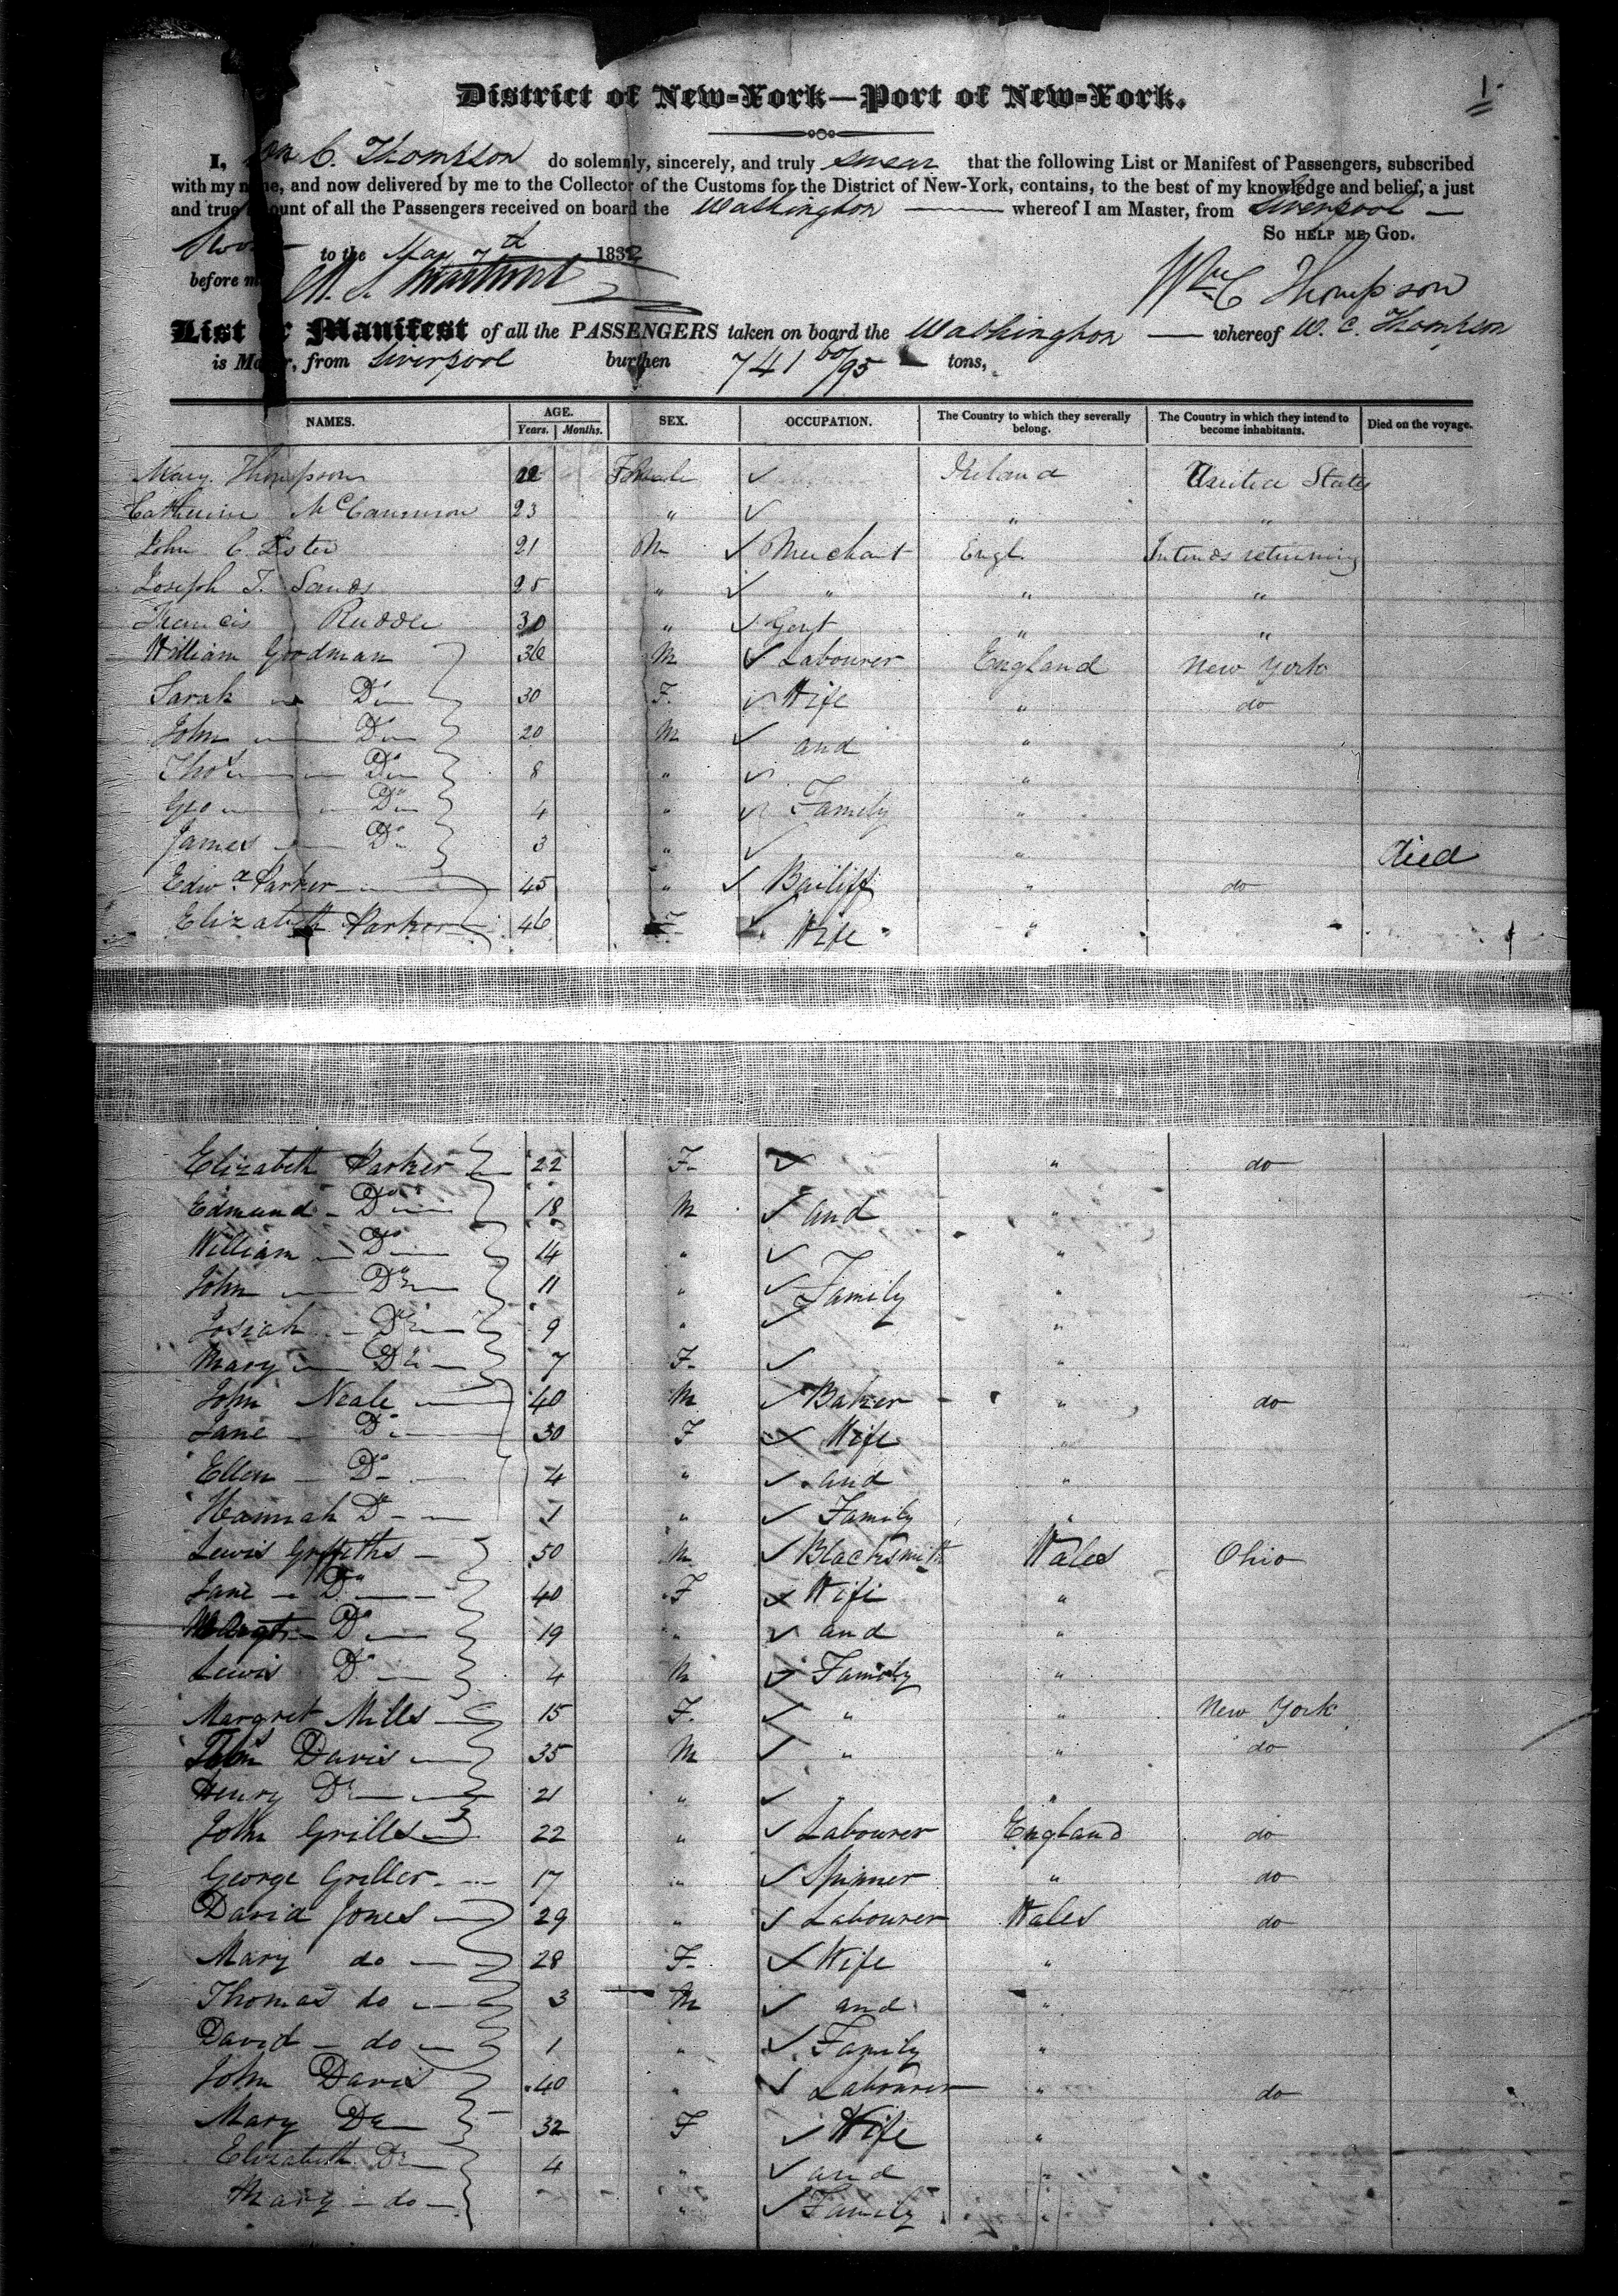 1
District of New-York—Port of New-York.
I, C. Thompson do solemnly, sincerely, and truly swear that the following List or Manifest of Passengers, subscribed
with my name, and now delivered by me to the Collector of the Customs for the District of New-York, contains, to the best of my knowledge and belief, a just
and true of all the Passengers received on board the Washington whereof I am Master, from Liverpool
So help me God.
to the May 7th 183
before me
Wm C Thompson
List or Manifest of all the PASSENGERS taken on board the Washington whereof W. C. Thompson
is Master, from Liverpool burthen 741 60/95 tons,
NAMES. AGE. Years. Months. SEX. OCCUPATION. The Country to which they severally belong. The Country in which they intend to become inhabitants. Died on the voyage.
Mary Thompson 22 Female ✓ Ireland United States
Catherine McCammon 23 " ✓ " "
John C Lister 21 M ✓ Merchant Engl. Intends returning
Joseph T. Sands 25 " ✓ " " "
Francis Ruddle 30 " ✓ Gent " "
William Goodman 36 M ✓ Labourer England New York
Sarah Do 30 F. ✓ Wife " do
John Do 20 M ✓ and "
Thos Do 8 " ✓ "
Geo Do 4 " ✓ Family "
James Do 3 " ✓ " died
Edwd Parker 45 " ✓ Bailiff " do
Elizabeth Parker 46 F ✓ Wife "
Elizabeth Parker 22 F ✓ " do
Edmund Do 18 M ✓ and "
William Do 14 " ✓ "
John Do 11 " ✓ Family "
Josiah Do 9 " ✓ "
Mary Do 7 F ✓ "
John Neale 40 M ✓ Baker " do
Jane Do 30 F ✓ Wife "
Ellen Do 4 " ✓ and "
Hannah Do 1 " ✓ Family "
Lewis Griffiths 50 M ✓ Blacksmith Wales Ohio
Jane Do 40 F ✓ Wife "
Do 19 " ✓ and "
Lewis Do 4 M ✓ Family "
Margret Mills 15 F. ✓ " " New York
John Davis 35 M ✓ " " do
Henry Do 21 " ✓ " "
John Grills 22 " ✓ Labourer England do
George Griller 17 " ✓ Spinner " do
David Jones 29 " ✓ Labourer Wales do
Mary do 28 F ✓ Wife "
Thomas do 3 M ✓ and "
David do 1 " ✓ Family "
John Davis 40 " ✓ Labourer " do
Mary Do 32 F ✓ Wife "
Elizabeth Do 4 " ✓ and "
Mary do " ✓ Family "